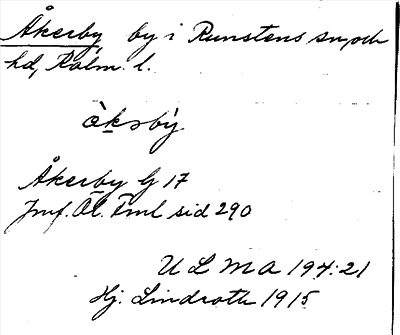 Åkerby by i Runstens sn, och
hd, Kalm. l.
åkərby
Åkerby G 17
Jmf. Öl. Fml sid 290
ULMA 194:21
Hj. Lindroth 1915